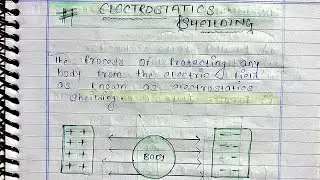 # ELECTROSTATICS
SHEILDING
The Process of Protecting any
body from the electric field
as known as electrostatics
Sheilding.
+ + - -
+ + BODY - -
+ + - -
+ + - -